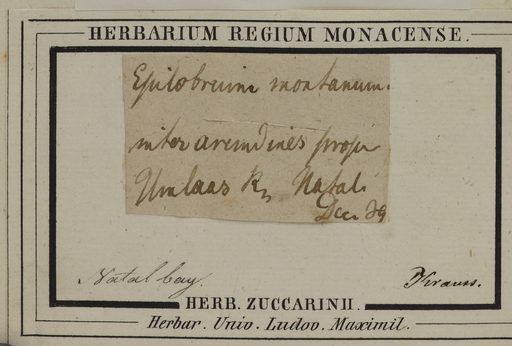 HERBARIUM REGIUM MONACENSE.
Epilobium montanum.
inter arundines prope
Umlaas R. Natal
Dec. 39
Natal bay.
Krauss.
HERB. ZUCCARINII.
Herbar. Univ. Ludov. Maximil.